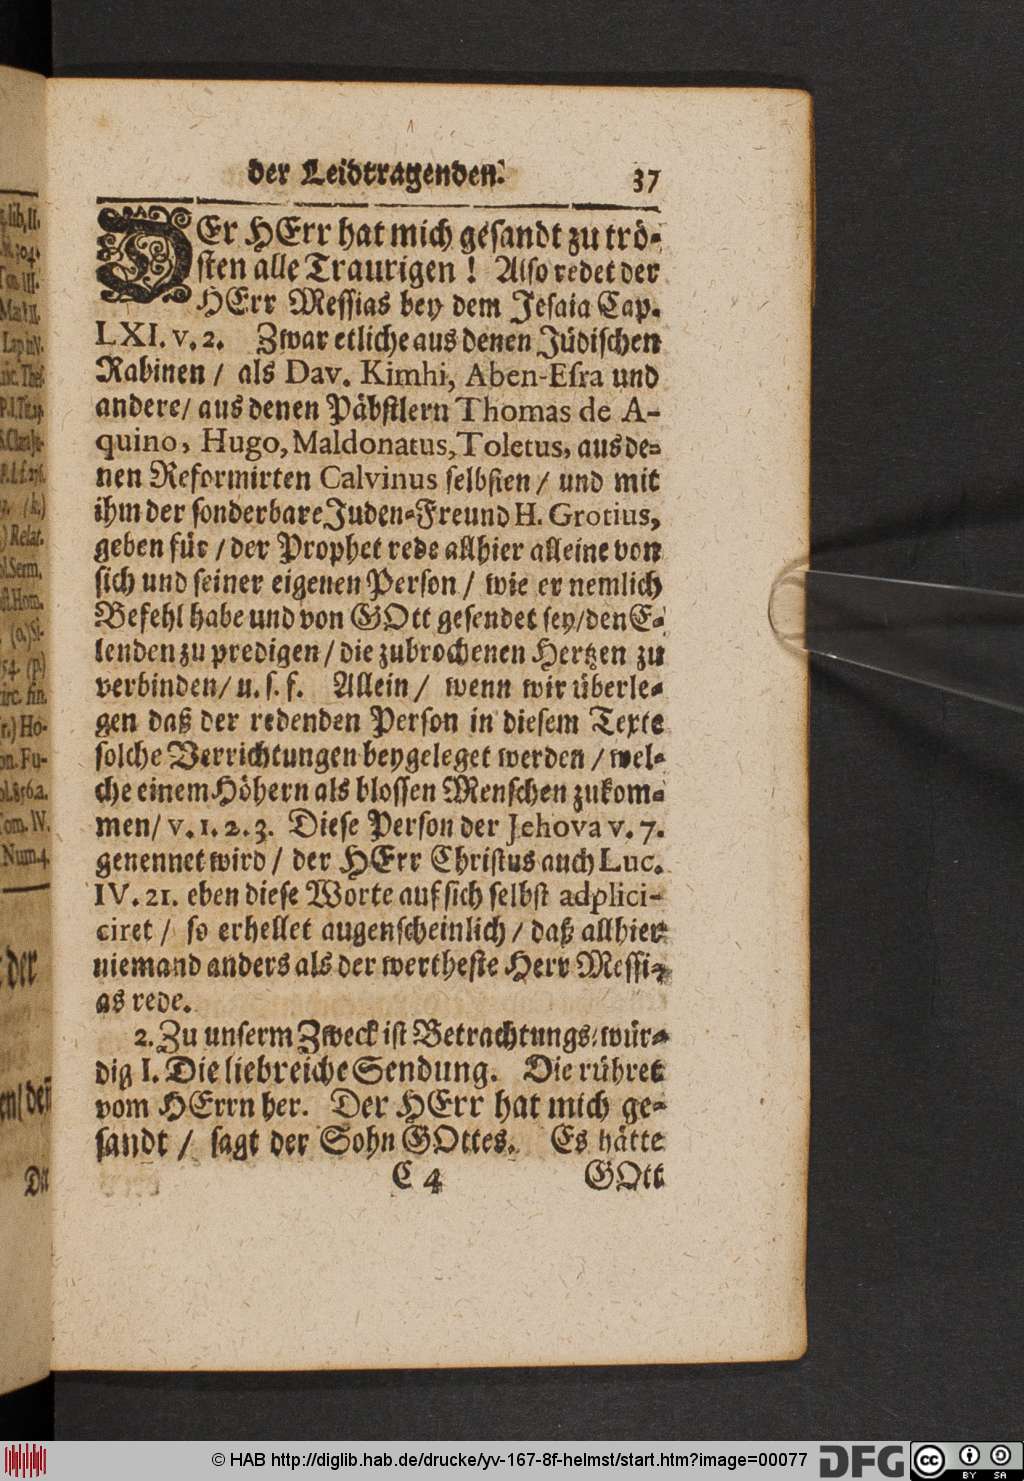 der Leidtragenden.
37
DEr HErr hat mich gesandt zu trö-
sten alle Traurigen! Also redet der
HErr Messias bey dem Jesaia Cap.
LXI. v. 2. Zwar etliche aus denen Jüdischen
Rabinen / als Dav. Kimhi, Aben-Esra und
andere / aus denen Päbstlern Thomas de A-
quino, Hugo, Maldonatus, Toletus, aus de-
nen Reformirten Calvinus selbsten / und mit
ihm der sonderbare Juden-Freund H. Grotius,
geben für / der Prophet rede allhier alleine von
sich und seiner eigenen Person / wie er nemlich
Befehl habe und von GOtt gesendet sey / den E-
lenden zu predigen / die zubrochenen Hertzen zu
verbinden / u. s. f. Allein / wenn wir überle-
gen daß der redenden Person in diesem Texte
solche Verrichtungen beygeleget werden / wel-
che einem Höhern als blossen Menschen zukom-
men / v. 1. 2. 3. Diese Person der Jehova v. 7.
genennet wird / der HErr Christus auch Luc.
IV. 21. eben diese Worte auf sich selbst adplici-
ciret / so erhellet augenscheinlich / daß allhier
niemand anders als der wertheste Herr Messi-
as rede.
2. Zu unserm Zweck ist Betrachtungs-wür-
dig I. Die liebreiche Sendung. Die rühret
vom HErrn her. Der HErr hat mich ge-
sandt / sagt der Sohn GOttes. Es hätte
C 4
GOtt
© HAB http://diglib.hab.de/drucke/yv-167-8f-helmst/start.htm?image=00077
DFG
cc
BY SA